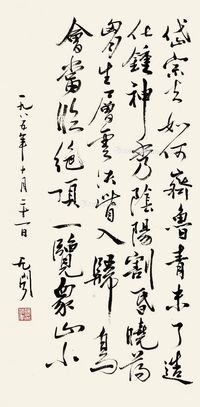 岱宗夫如何齊魯青未了造
化鍾神秀陰陽割昏曉蕩
胸生層雲決眥入歸鳥
會當臨絕頂一覽衆山小
一九八五年十月二十一日